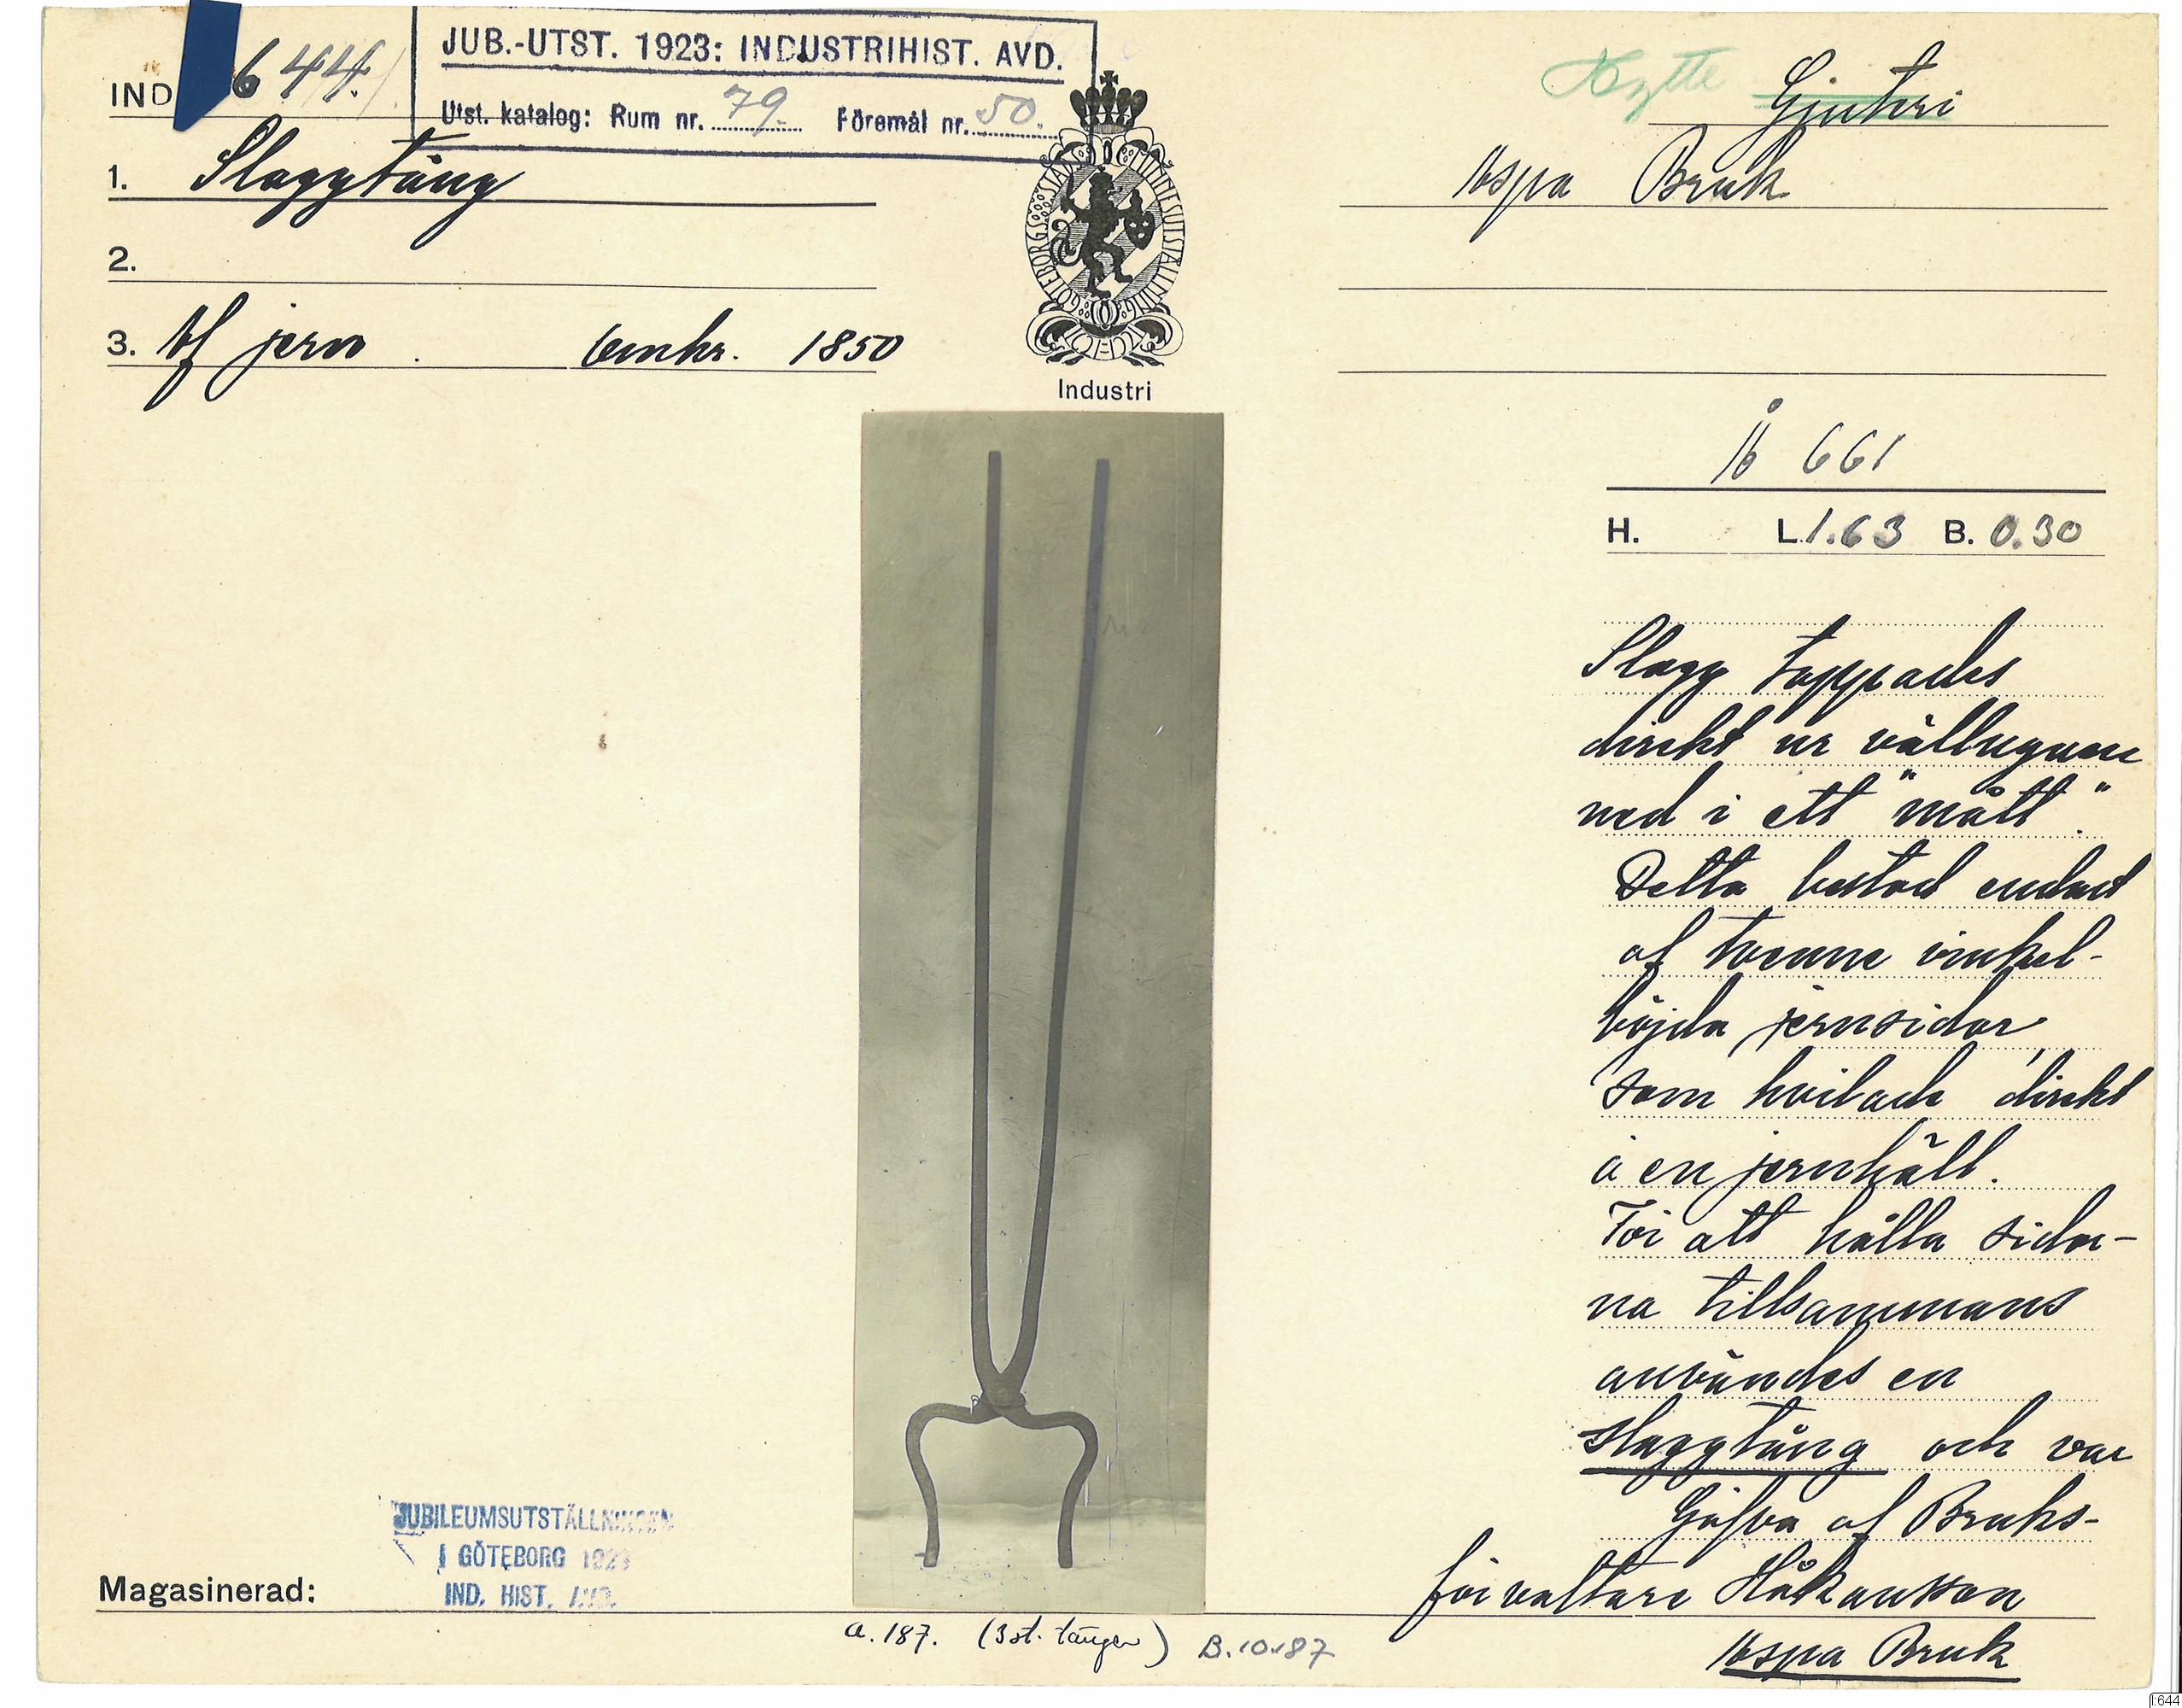 IND 644.
JUB.-UTST. 1923: INDUSTRIHIST. AVD.
Utst. katalog: Rum nr. 79. Föremål nr. 50.
Hytte Gjuteri
1. Slaggtång
Aspa Bruk
2.
3. Af jern. Omkr. 1850
GÖTEBORGS STADS MINNESUTSTÄLLNING
Industri
Å 661
H. L. 1.63 B. 0.30
Slagg tappades
direkt ur vällugnen
ned i ett "mått".
Detta bestod endast
af tvenne vinkel-
böjda jernsidor,
som hvilade direkt
å en jernhäll.
För att hålla sidor-
na tillsammans
användes en
slaggtång och var
Gåfva af Bruks-
förvaltare Håkansson
Aspa Bruk
JUBILEUMSUTSTÄLLNINGEN
I GÖTEBORG 1923
IND. HIST. AVD.
Magasinerad:
a. 187. (3 st. tänger) B. 10.87
I:644